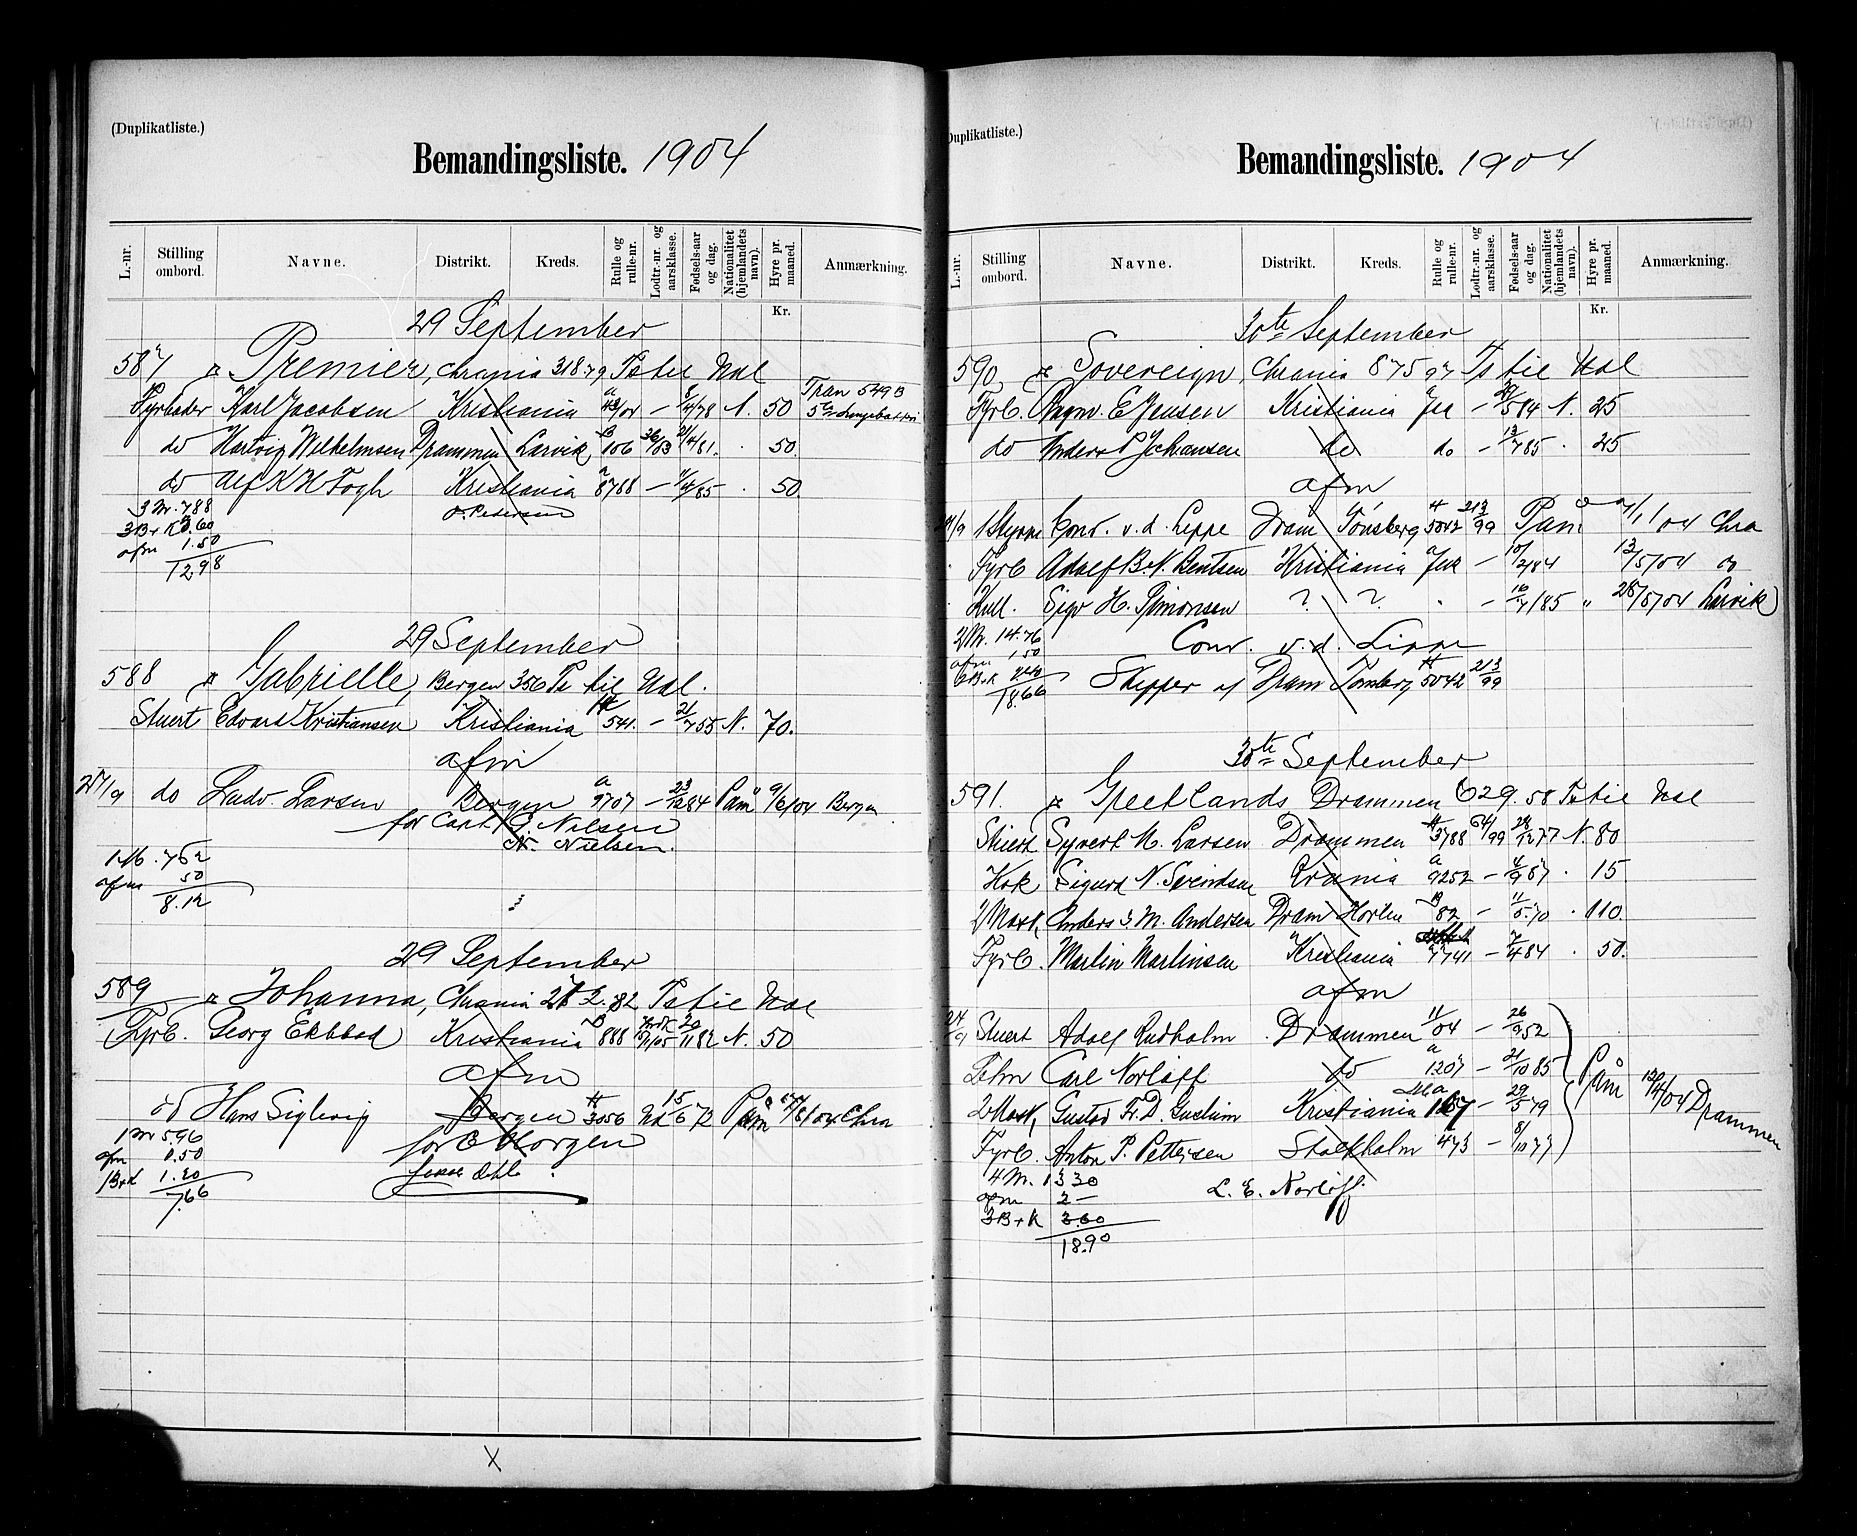 (Duplikatliste.)
Bemandingsliste. 1904
L.-nr. Stilling ombord. Navne. Distrikt. Kreds. Rulle og rulle-nr. Lodtr.-nr. og aarsklasse. Fødsels-aar og dag. Nationalitet (hjemlandets navn). Hyre pr. maaned. Anmærkning.
Kr.
29 September
587 Premier, Chrania 318.79 Ts til Udl
Fyrbøder Karl Jacobsen Kristiania 43/04 – 8/4/78 N. 50 Tran 549 B
do Hartvig Wilhelmsen Drammen Larvik B 106 36/03 21/4/81. 50.
do Alf K H Fogh Kristiania a 8788 – 11/4/85 50
3 M. 7.88 O. Pedersen
3 B+K 3.60
afm 1.50
12.98
29 September
588 Gabrielle, Bergen 356 Ts til Udl.
Stuert Edvard Kristiansen Kristiania H 541. – 21/7 55 N. 70.
afm
27/9 do Ludv. Larsen Bergen a 9707 – 23/12 84 Paam 9/6/04 Bergen
for Carl G. Nielsen
N. Nielsen.
1 M. 7.62
afm 50
8.12
29 September
589 Johanna, Chrania 272.82 Ts til Udl
Fyrb. Georg Ekblad Kristiania B 888 20/11 82 N. 50
afm
Hans Siglevig Bergen H 3056 15/6 72 Paam 17/8/04 Chra
1 M 5.96 for C Horgen
afm 0.50
1 B+K 1.20
7.66
X

(Duplikatliste.)
Bemandingsliste. 1904
L.-nr. Stilling ombord. Navne. Distrikt. Kreds. Rulle og rulle-nr. Lodtr.-nr. og aarsklasse. Fødsels-aar og dag. Nationalitet (hjemlandets navn). Hyre pr. maaned. Anmærkning.
Kr.
30te September
590 Sovereign, Chrania 875 97 Ts til Udl
Fyrb. E Jensen Kristiania – 5 84 N. 25
do Anders P Johansen do do – 13/7 85 25
afm
1 Styrm Conr. v. d. Lippe Dram Tønsberg H 5042 213/99 Paam /1/04 Chra
Fyrb Adolf B. N. Bentsen Kristiania – 10/2/84 12/5/04
Sigv H. Simonsen ? ? – 16/7/85 " 25/5/04 Larvik
2 M. 14.76 Conr. v. d. Lippe
afm 1.50 Skipper af Dram Tønsberg H 5042 213/99
B+K 2.40
18.66
30te September
591. Greetlands Drammen 629.58 Ts til Udl
Stuert Syvert M. Larsen Drammen H 3788 64/99 28/12 77 N. 80
Kok Sigurd N. Svendsen Crania a 9252 – 4/9 87 15
2 Mask, Anders M. Andersen Dram Horten B 82 – 11/5 70 110
Fyrb. Martin Martinsen Kristiania 7741 – 7/4 84 50.
afm
24/9 Stuert Adolf Rudholm Drammen 11/04 – 26/9 52
Carl Norløff do a 1207 – 21/10 85 Påm 120/4/04 Drammen
2 Mask, Gustav Fr. D. Kristiania Ma – 29/5 79
Fyrb. Anton P. Pettersen Stockholm 473 – 8/10 77
4 M. 13 30 L. E. Norløff.
afm 2 –
3 B+K 3.60
18.90